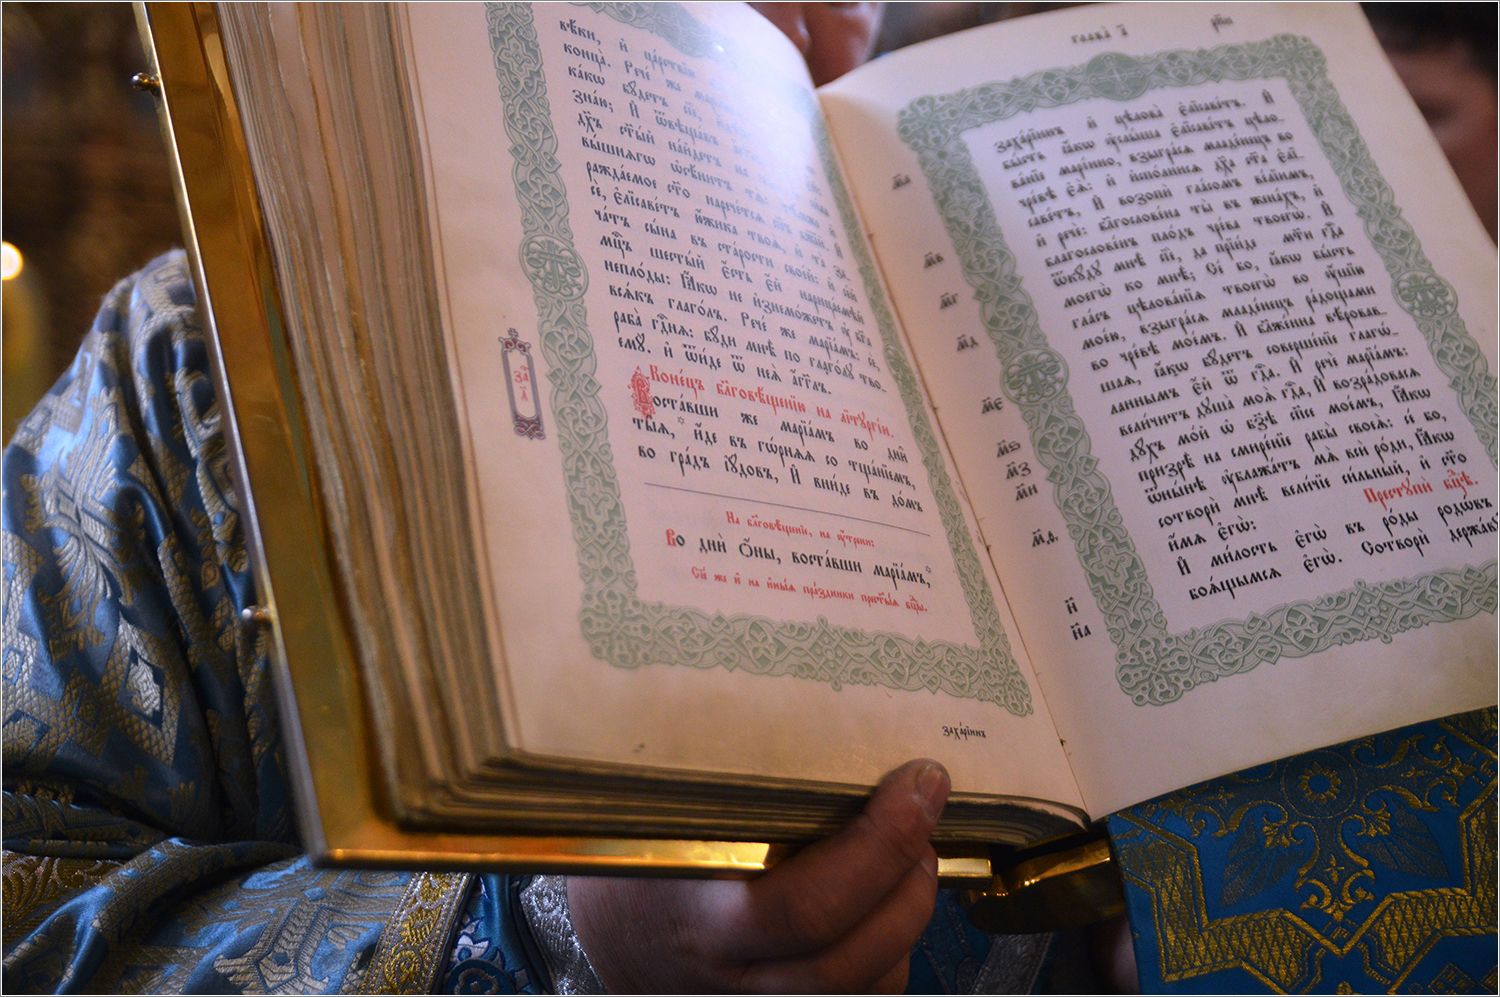 вѣ́ки, и҆ ца́рствїю
конца̀. Рече́ же марїа́мъ
ка́кѡ бꙋ́детъ сїѐ,
зна́ю; И҆ ѿвѣща́въ а҆́гг҃лъ
дх҃ъ ст҃ы́й на́йдетъ на
вы́шнѧгѡ ѡ҆сѣни́тъ тѧ̀: тѣ́мже и҆
ражда́емое ст҃о наречетсѧ сн҃ъ бж҃їй. И҆
сѐ, є҆лїсаве́тъ ю҆́жика твоѧ̀, и҆ та̀ за-
ча́тъ сы́на въ ста́рости свое́й: и҆ се́й
мцⷭ҇ъ шесты́й є҆́сть є҆́й нарица́емѣй
непло́ды: ꙗ҆́кѡ не и҆знемо́жетъ ᲂу҆ бг҃а
всѧ́къ глаго́лъ. Рече́ же марїа́мъ: сѐ,
раба̀ гдⷭ҇нѧ: бꙋ́ди мнѣ̀ по глаго́лꙋ тво-
емꙋ̀. и҆ ѿи́де ѿ неѧ̀ а҆́гг҃лъ.
Коне́цъ бл҃говѣ́щенїю на лїтꙋргі́и.
Воста́вши же марїа́мъ во дни̑
ты̑ѧ, и҆́де въ гѡ́рнѧѧ со тща́нїемъ,
во гра́дъ і҆ꙋ́довъ, И҆ вни́де въ до́мъ
На бл҃говѣ́щенїе, на ᲂу҆́трени:
Во дни̑ Ѻ҆́ны, воста́вши марїа́мъ,
Сїѐ же и҆ на и҆ны̑ѧ пра́здники прест҃ы́ѧ бцⷣы.
заха́рїинъ
За҄
глава̀ а҃
заха́рїинъ и҆ цѣлова̀ є҆лїсаве́тъ. И҆
бы́сть ꙗ҆́кѡ ᲂу҆слы́ша є҆лїсаве́тъ цѣло-
ва́нїе марі́ино, взыгра́сѧ младе́нецъ во
чре́вѣ є҆ѧ̀: и҆ и҆спо́лнисѧ дх҃а ст҃а є҆лї-
саве́тъ, И҆ возопѝ гла́сомъ ве́лїимъ,
и҆ речѐ: блгⷭ҇ове́на ты̀ въ жена́хъ, и҆
благослове́нъ пло́дъ чре́ва твоегѡ̀. И҆
ѿкꙋ́дꙋ мнѣ̀ сїѐ, да прїи́де мт҃и гдⷭ҇а
моегѡ̀ ко мнѣ̀; Се́ бо, ꙗ҆́кѡ бы́сть
гла́съ цѣлова́нїѧ твоегѡ̀ во ᲂу҆́шїю
мое́ю, взыгра́сѧ младе́нецъ ра́дощами
во чре́вѣ мое́мъ. И҆ блаже́нна вѣ́ровав-
шаѧ, ꙗ҆́кѡ бꙋ́детъ соверше́нїе глагѡ́-
ланнымъ є҆́й ѿ гдⷭ҇а. И҆ речѐ марїа́мъ:
вели́читъ дꙋша̀ моѧ̀ гдⷭ҇а, И҆ возра́довасѧ
дꙋ́хъ мо́й ѡ҆ бз҃ѣ сп҃сѣ мое́мъ, Ꙗ҆́кѡ
призрѣ̀ на смире́нїе рабы̀ своеѧ̀: се́ бо,
ѿны́нѣ ᲂу҆блажа́тъ мѧ̀ всѝ ро́ди, Ꙗ҆́кѡ
сотворѝ мнѣ̀ вели́чїе си́льный, и҆ ст҃о
и҆́мѧ є҆гѡ̀: Престꙋпѝ бцⷣѣ.
И҆ ми́лость є҆гѡ̀ въ ро́ды родѡ́въ
боѧ́щымсѧ є҆гѡ̀. Сотворѝ держа́вꙋ
м҃а
м҃в
м҃г
м҃д
м҃е
м҃ѕ
м҃з
м҃и
м҃ѳ.
н҃
н҃а